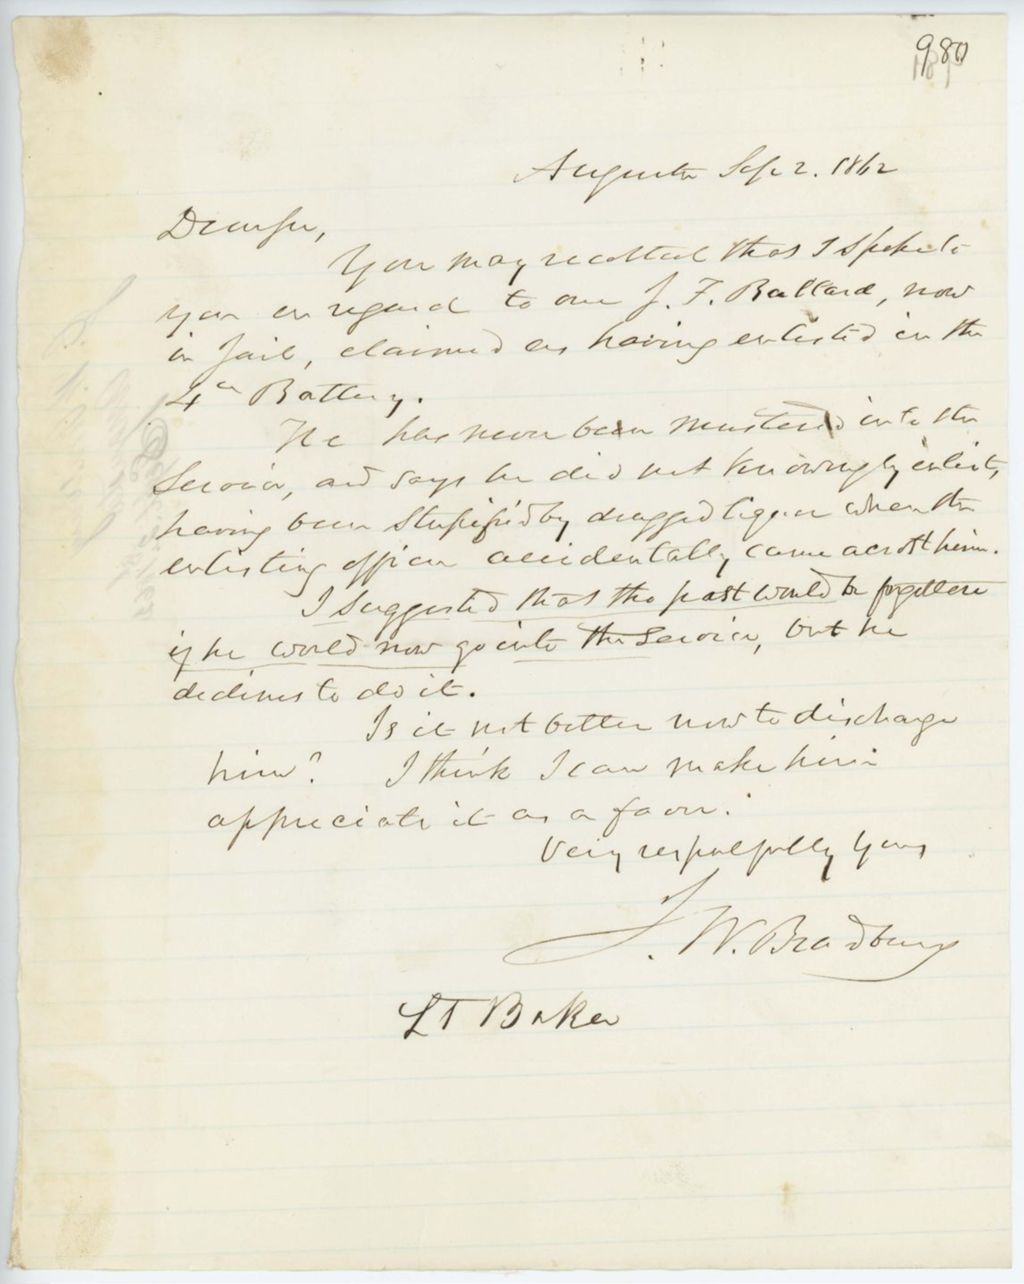 980
Augusta Sep 2. 1862
Dear Sir,
You may recollect that I spoke to
you in regard to one J. F. Ballard, now
in jail, claimed as having enlisted in the
4th Battery.
He has never been mustered into the
Service, and says he did not knowingly enlist,
having been stupified by drugged liquor when the
enlisting officer accidentally came across him.
I suggested that the past would be forgotten
if he would now go into the Service, but he
declines to do it.
Is it not better now to discharge
him? I think I can make him
appreciate it as a favor.
Very respectfully Yours
J. W. Bradbury
LT Baker